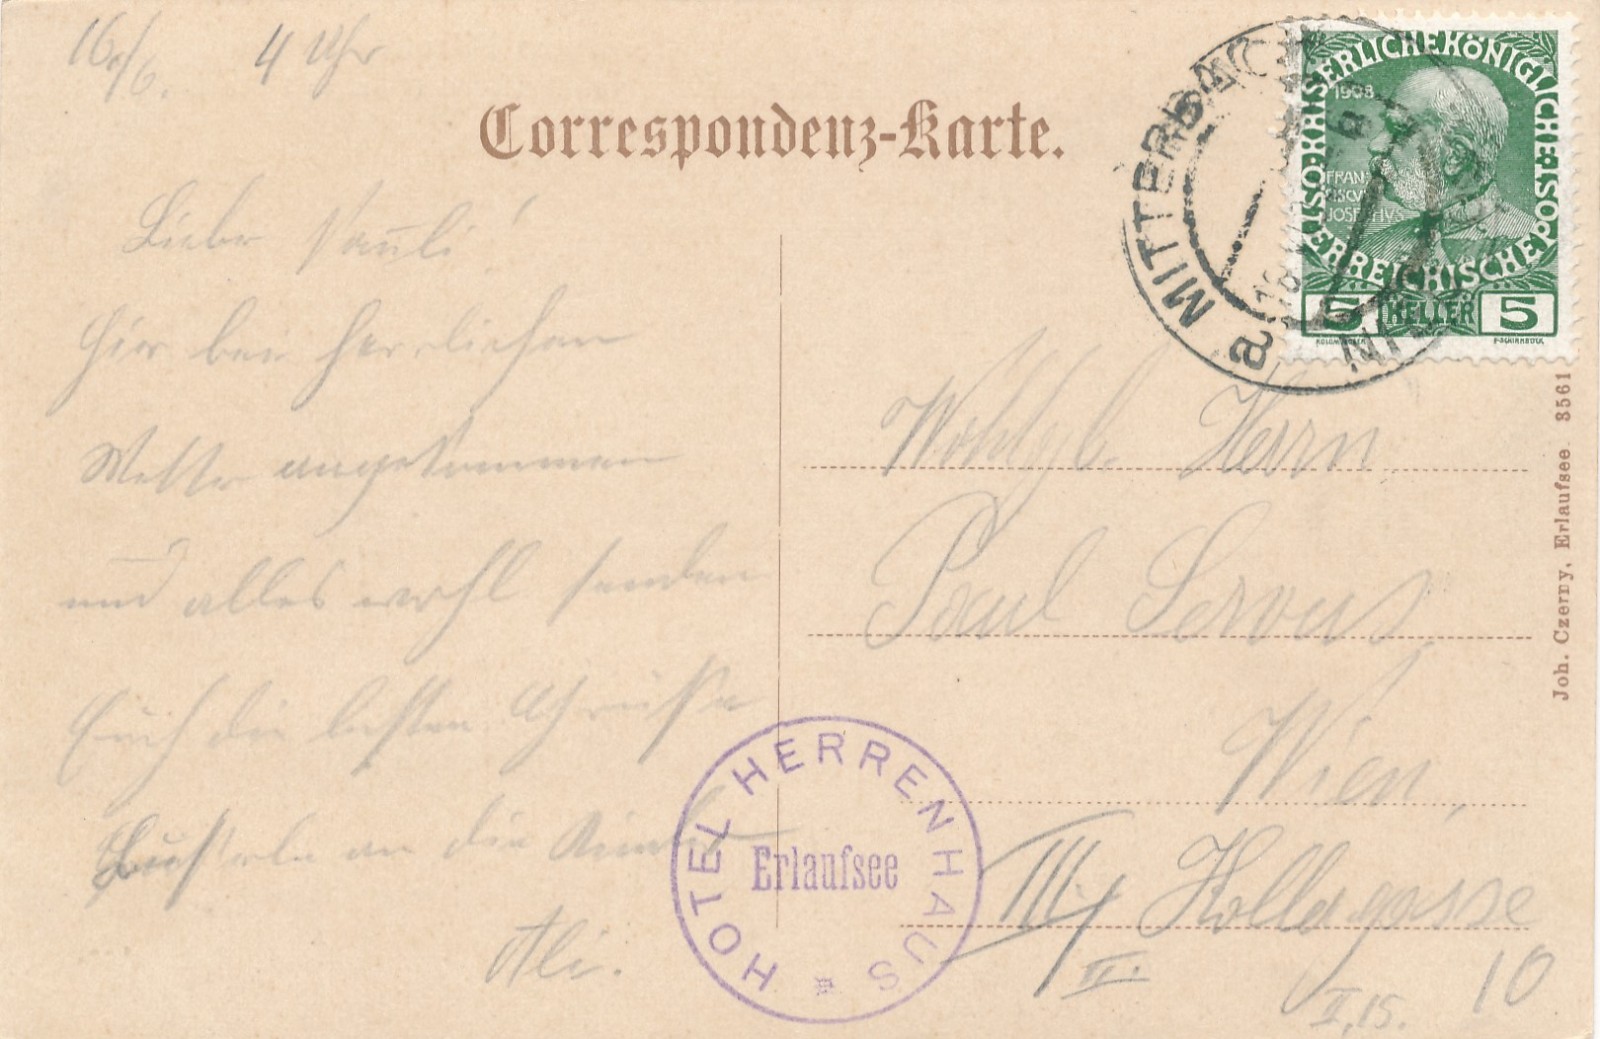 16./6. 4 Uhr
Correspondenz-Karte.
Liebe Pauli!
Hier bei herrlichen
Wetter angekommen
und alles wohl senden
Euch die besten Grüße
Busserln an die Kinder
Ali.
Wohlgb. Herrn
Paul Servus,
Wien,
III/ Kollergasse
II. 10
I, 15.
HOTEL HERRENHAUS
Erlaufsee
MITTERBACH
KAISERLICHE KÖNIGLICHE
ÖSTERREICHISCHE POST
1908
FRAN
CISCVS
JOSEPHVS
5 HELLER 5
Joh. Czerny, Erlaufsee 3561